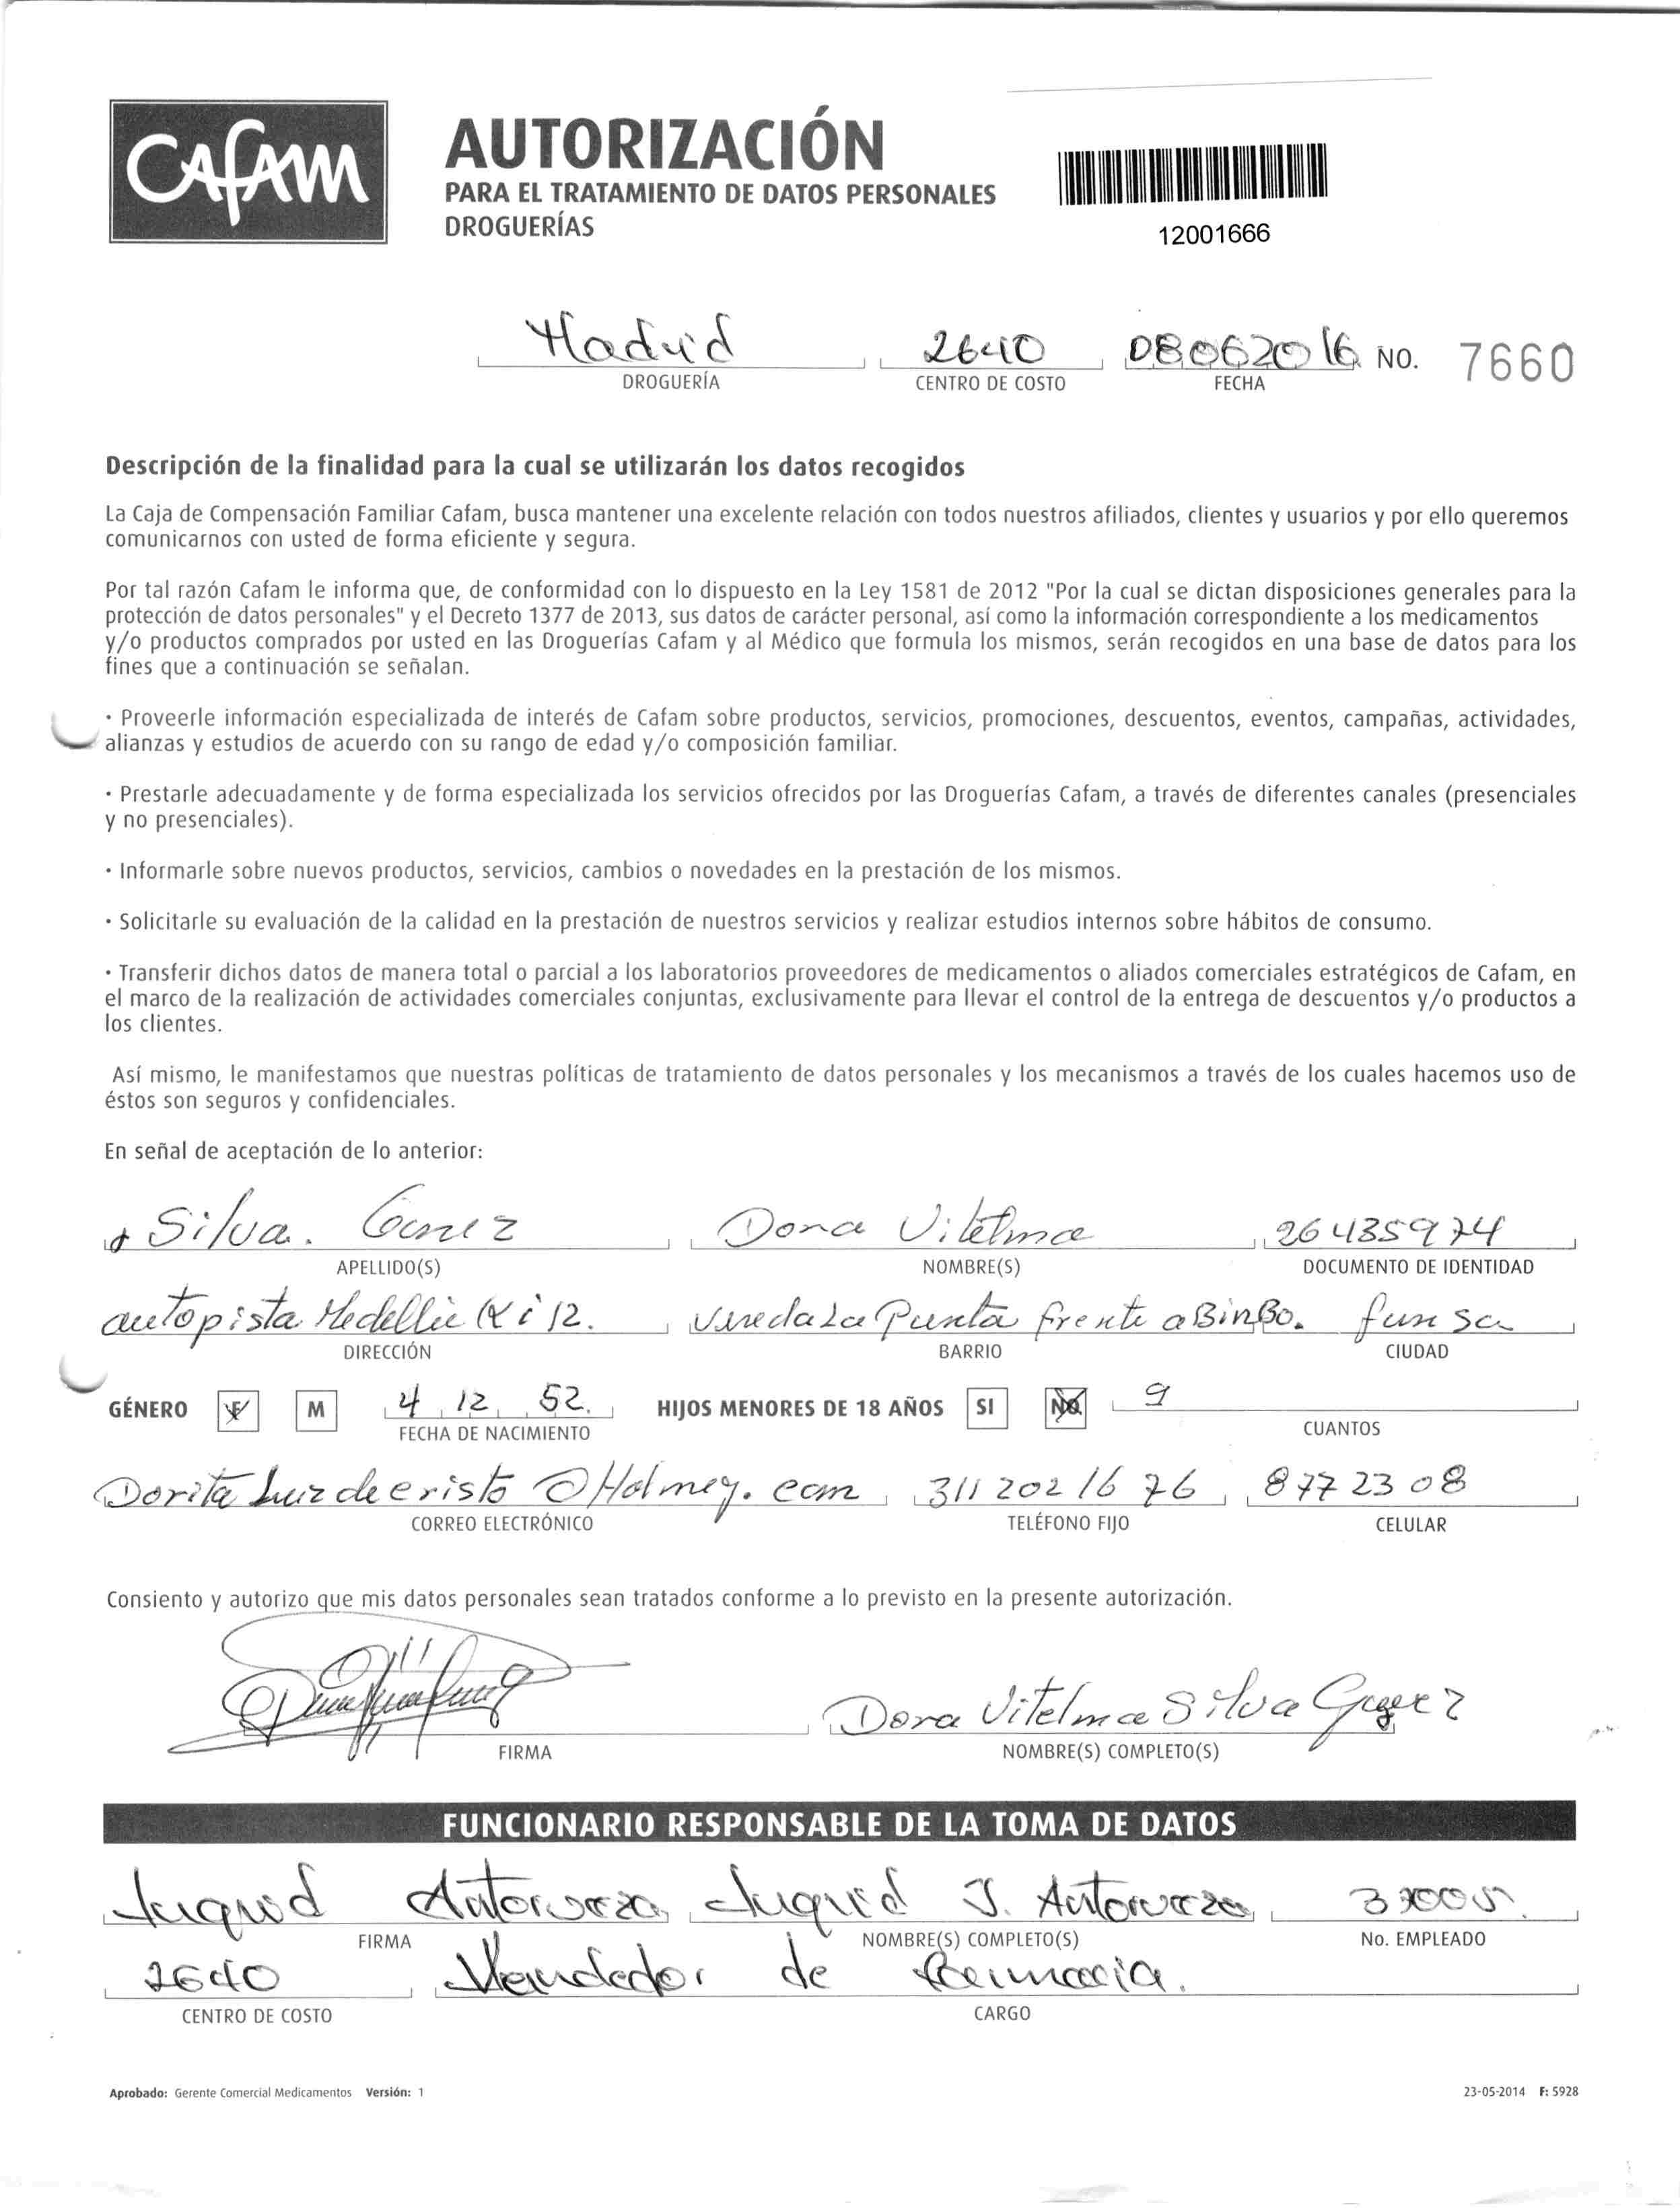 CAFAM
AUTORIZACIÓN
PARA EL TRATAMIENTO DE DATOS PERSONALES
DROGUERÍAS
12001666
Madrid 2640 08062016 NO. 7660
DROGUERÍA CENTRO DE COSTO FECHA
Descripción de la finalidad para la cual se utilizarán los datos recogidos
La Caja de Compensación Familiar Cafam, busca mantener una excelente relación con todos nuestros afiliados, clientes y usuarios y por ello queremos
comunicarnos con usted de forma eficiente y segura.
Por tal razón Cafam le informa que, de conformidad con lo dispuesto en la Ley 1581 de 2012 "Por la cual se dictan disposiciones generales para la
protección de datos personales" y el Decreto 1377 de 2013, sus datos de carácter personal, así como la información correspondiente a los medicamentos
y/o productos comprados por usted en las Droguerías Cafam y al Médico que formula los mismos, serán recogidos en una base de datos para los
fines que a continuación se señalan.
· Proveerle información especializada de interés de Cafam sobre productos, servicios, promociones, descuentos, eventos, campañas, actividades,
alianzas y estudios de acuerdo con su rango de edad y/o composición familiar.
· Prestarle adecuadamente y de forma especializada los servicios ofrecidos por las Droguerías Cafam, a través de diferentes canales (presenciales
y no presenciales).
· Informarle sobre nuevos productos, servicios, cambios o novedades en la prestación de los mismos.
· Solicitarle su evaluación de la calidad en la prestación de nuestros servicios y realizar estudios internos sobre hábitos de consumo.
· Transferir dichos datos de manera total o parcial a los laboratorios proveedores de medicamentos o aliados comerciales estratégicos de Cafam, en
el marco de la realización de actividades comerciales conjuntas, exclusivamente para llevar el control de la entrega de descuentos y/o productos a
los clientes.
Así mismo, le manifestamos que nuestras políticas de tratamiento de datos personales y los mecanismos a través de los cuales hacemos uso de
éstos son seguros y confidenciales.
En señal de aceptación de lo anterior:
Silva. Dora Vitelma 26435974
APELLIDO(S) NOMBRE(S) DOCUMENTO DE IDENTIDAD
autopista Medellin 12. Vereda La Punta frente a BinBo. funsa
DIRECCIÓN BARRIO CIUDAD
GÉNERO F M 4 12 52. HIJOS MENORES DE 18 AÑOS SI NO 9
FECHA DE NACIMIENTO CUANTOS
Dorita Luz de cristo @ Hotmey. com 311 202 16 76 877 23 08
CORREO ELECTRÓNICO TELÉFONO FIJO CELULAR
Consiento y autorizo que mis datos personales sean tratados conforme a lo previsto en la presente autorización.
Dora Vitelma Silva
FIRMA NOMBRE(S) COMPLETO(S)
FUNCIONARIO RESPONSABLE DE LA TOMA DE DATOS
FIRMA NOMBRE(S) COMPLETO(S) No. EMPLEADO
2640 Vendedor de Farmacia.
CENTRO DE COSTO CARGO
Aprobado: Gerente Comercial Medicamentos Versión: 1 23-05-2014 F: 5928